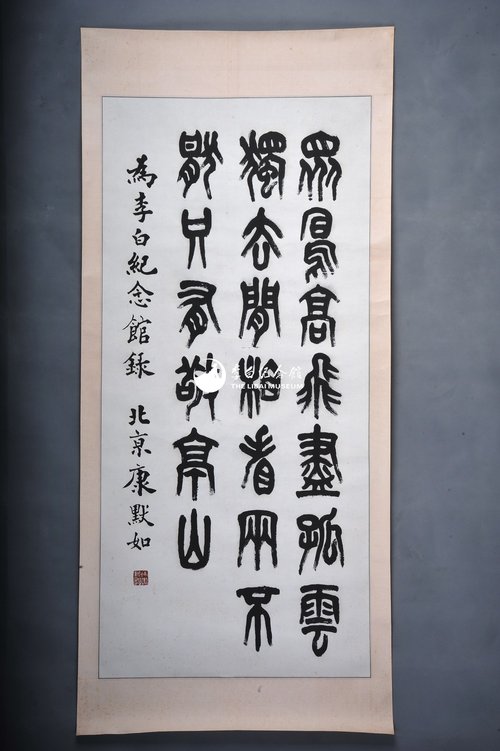 眾鳥高飛盡孤雲
獨去閒相看兩不
厭只有敬亭山
為李白紀念館録 北京康默如
李白纪念館
THE LIBAI MUSEUM